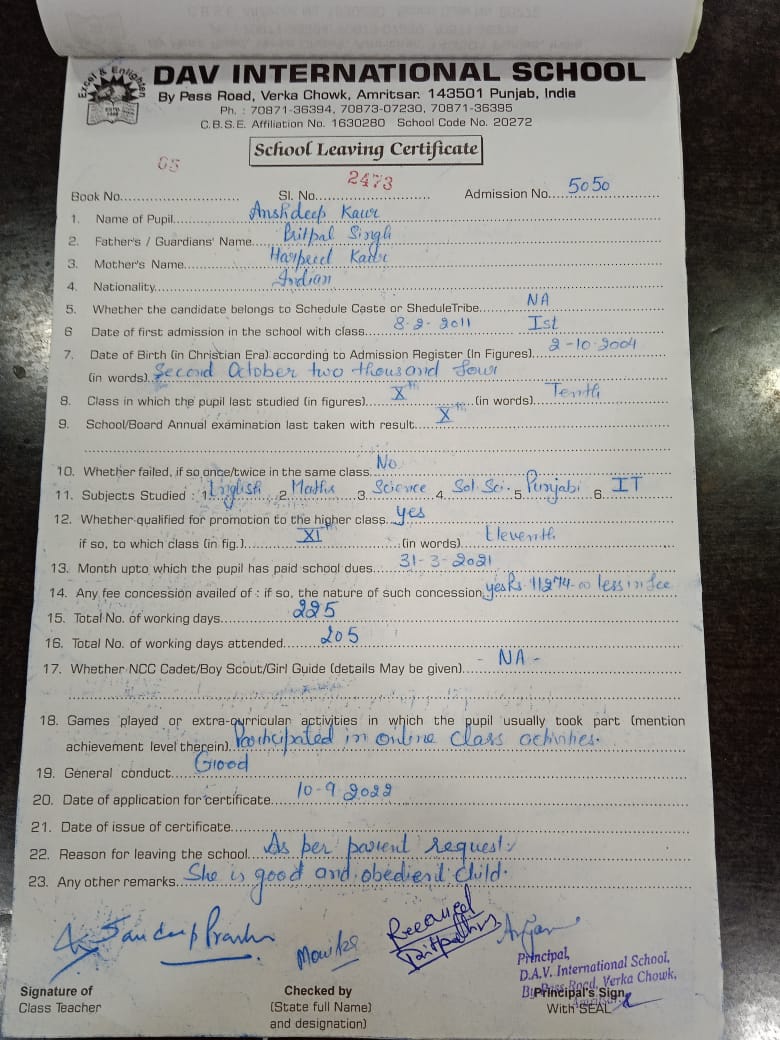 Excel & Enlighten
DAV INTERNATIONAL SCHOOL
By Pass Road, Verka Chowk, Amritsar. 143501 Punjab, India
Ph. : 70871-36394, 70873-07230, 70871-36395
C.B.S.E. Affiliation No. 1630280 School Code No. 20272
School Leaving Certificate
Book No. 65 Sl. No. 2473 Admission No. 5050
1. Name of Pupil Anshdeep Kaur
2. Father's / Guardians' Name Pritpal Singh
3. Mother's Name Harpreet Kaur
4. Nationality Indian
5. Whether the candidate belongs to Schedule Caste or SheduleTribe NA
6 Date of first admission in the school with class 8-2-2011 Ist
7. Date of Birth (in Christian Era) according to Admission Register (In Figures) 2-10-2004
(in words) Second October two thousand four
8. Class in which the pupil last studied (in figures) Xth (in words) Tenth
9. School/Board Annual examination last taken with result Xth
10. Whether failed, if so once/twice in the same class No
11. Subjects Studied : 1. English 2. Maths 3. Science 4. Sol. Sci. 5. Punjabi 6. IT
12. Whether qualified for promotion to the higher class yes
if so, to which class (in fig.) XIth (in words) Eleventh
13. Month upto which the pupil has paid school dues 31-3-2021
14. Any fee concession availed of : if so, the nature of such concession yes Rs 11274-00 less in fee
15. Total No. of working days 225
16. Total No. of working days attended 205
17. Whether NCC Cadet/Boy Scout/Girl Guide (details May be given) - NA -
18. Games played or extra-curricular activities in which the pupil usually took part (mention
achievement level therein) Participated in online class activities.
19. General conduct Good
20. Date of application for certificate 10-9-2022
21. Date of issue of certificate
22. Reason for leaving the school As per parent request
23. Any other remarks She is good and obedient child.
Monika
Received
Principal,
D.A.V. International School,
By Pass Road, Verka Chowk,
Amritsar
Signature of
Class Teacher
Checked by
(State full Name)
and designation)
Principal's Sign.
With SEAL